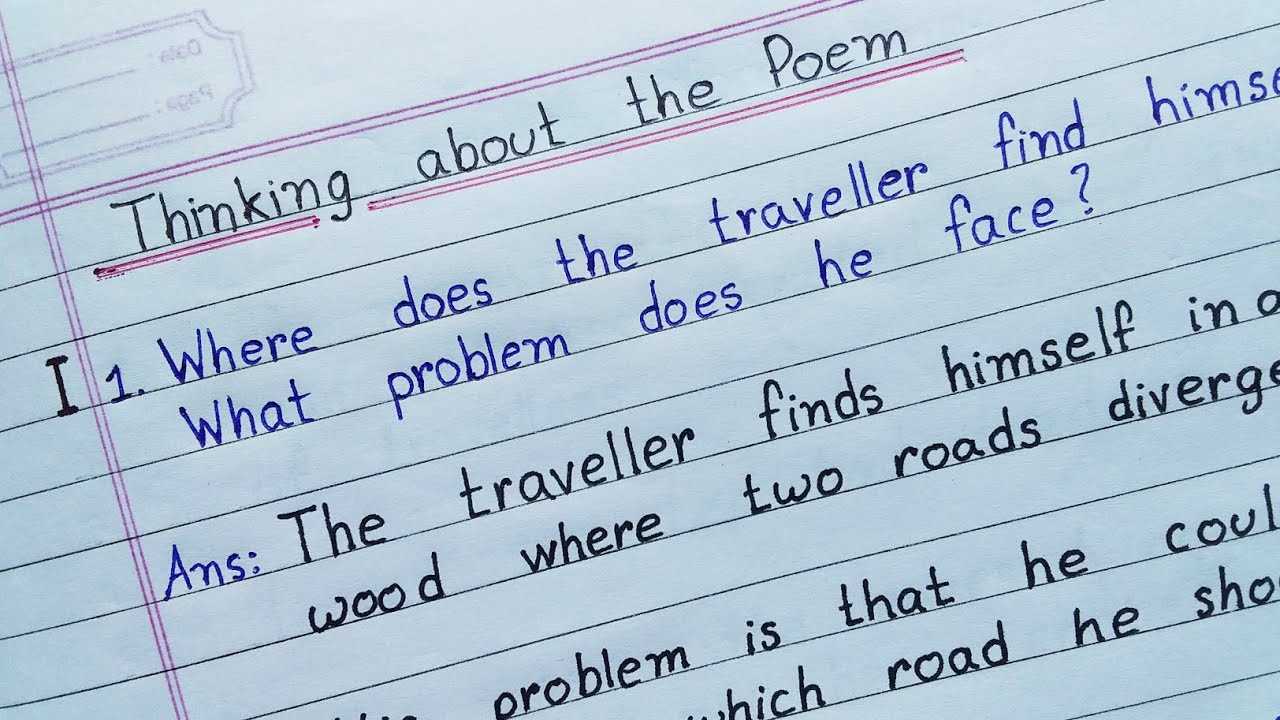 Thinking about the Poem
I 1. Where does the traveller find
What problem does he face?
Ans: The traveller finds himself in
wood where two roads
problem is that he
which road he